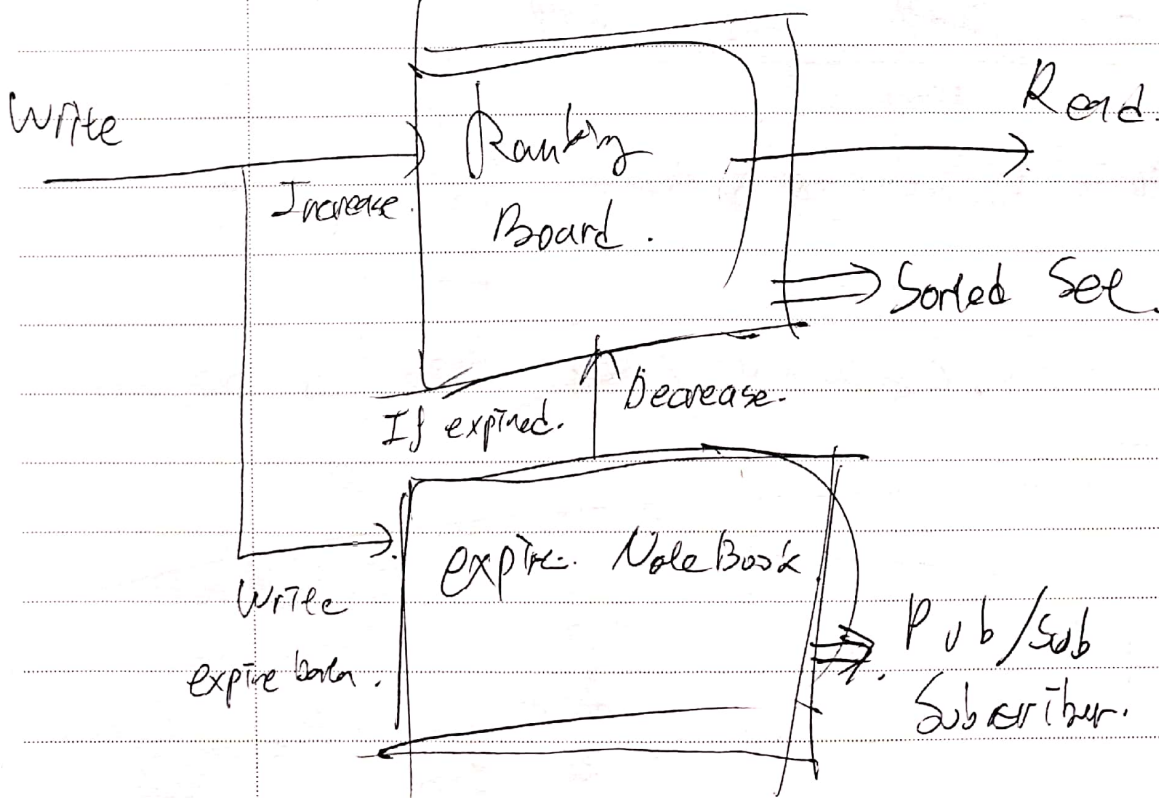 Write
Read.
Ranking
Increase.
Board.
Sorted Set.
If expired.
Decrease.
expire. NoteBook
Write
expire
Pub/Sub
Subscriber.